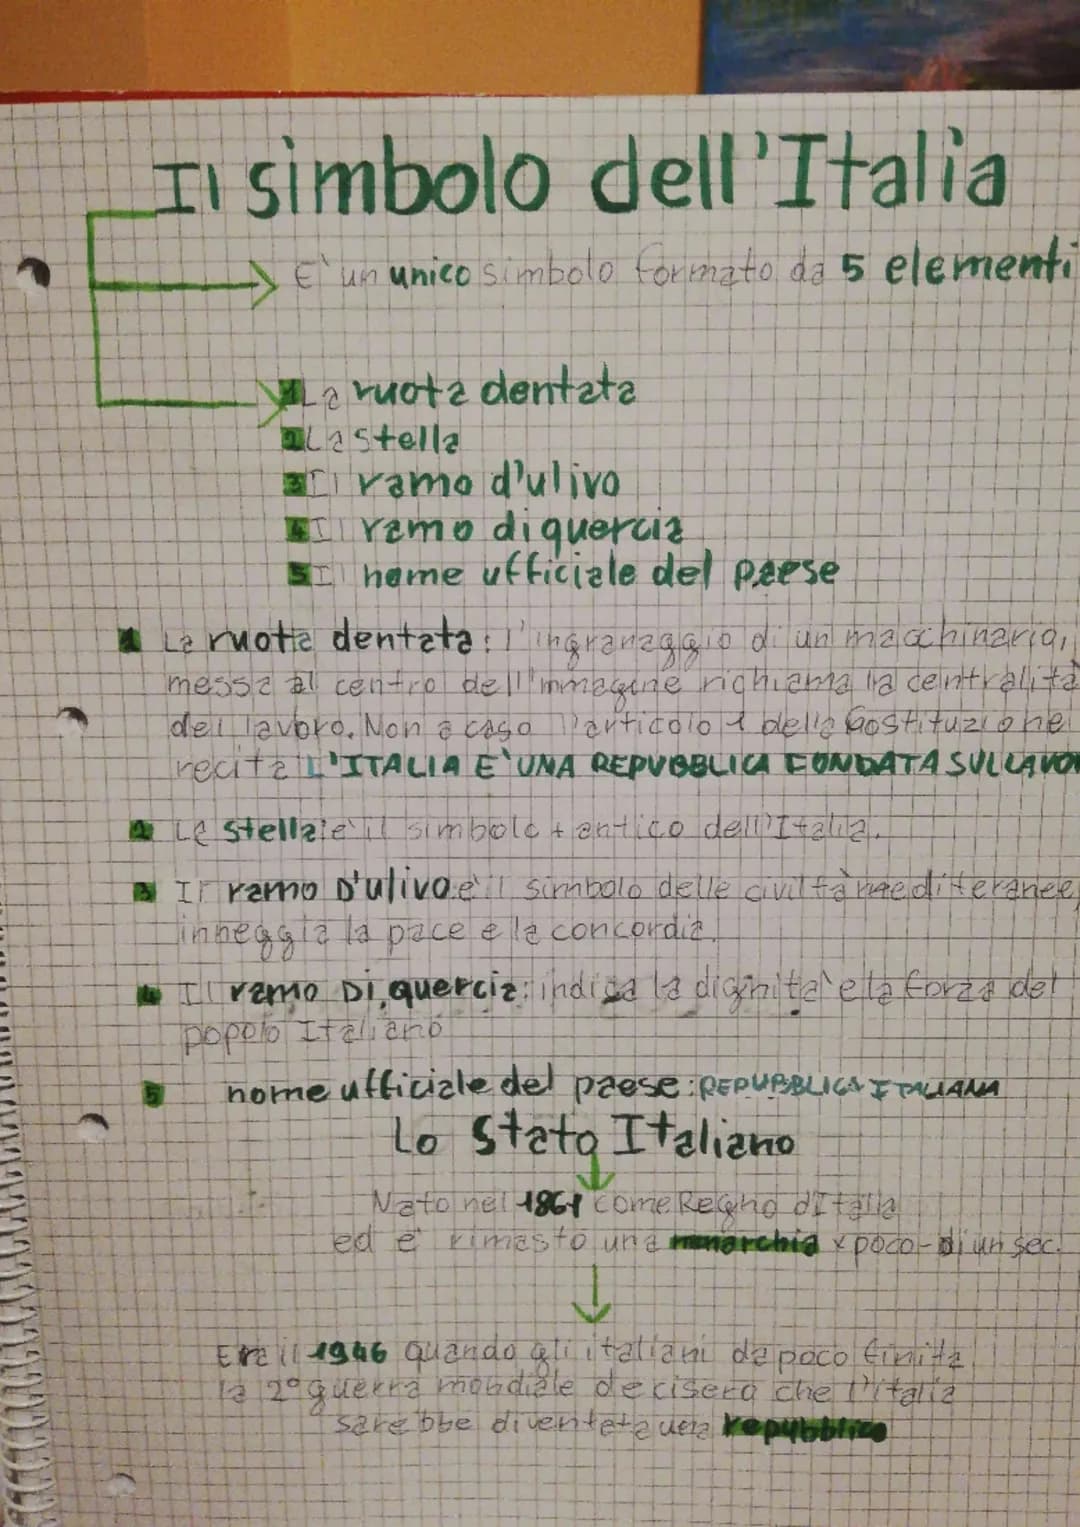 Il simbolo dell'Italia
E' un unico simbolo formato da 5 elementi
1 La ruota dentata
2 La stella
3 Il ramo d'ulivo
4 Il ramo di quercia
5 Il nome ufficiale del paese
1 La ruota dentata: l'ingranaggio di un macchinario,
messa al centro dell'immagine richiama la centralità
del lavoro. Non a caso l'articolo 1 della Costituzione
recita L'ITALIA E' UNA REPUBBLICA FONDATA SUL LAVO
2 La stella: e' il simbolo + antico dell'Italia.
3 Il ramo D'ulivo: e' il simbolo delle civiltà mediteranee,
inneggia la pace e la concordia.
4 Il ramo Di quercia: indica la dignita' e la forza del
popolo Italiano
5 nome ufficiale del paese: REPUBBLICA ITALIANA
Lo Stato Italiano
Nato nel 1861 come Regno d'Italia
ed e' rimasto una monarchia x poco - di un sec.
Era il 1946 quando gli italiani da poco finita
la 2° guerra mondiale decisero che l'italia
sarebbe diventata una repubblica